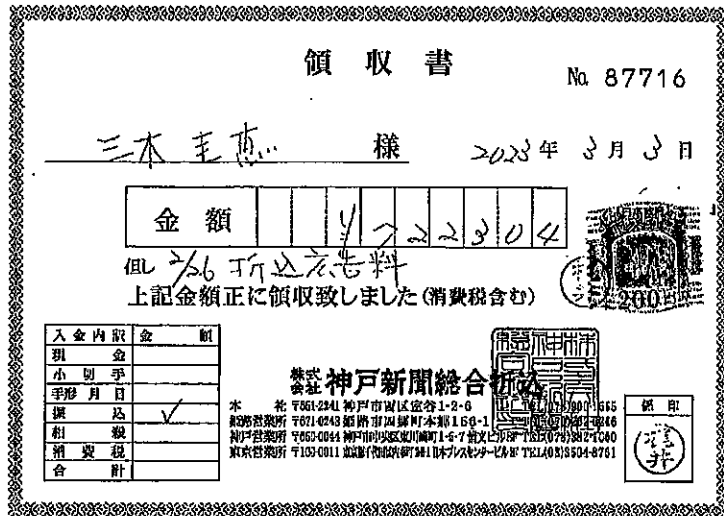 領収書
No. 87716
三木圭恵 様 2023年 3月 3日
金額 ¥722304
但し 2/26 折込広告料
上記金額正に領収致しました(消費税含む)
200
入金内訳 金額
現金
小切手
手形 月 日
振込 ✓
相殺
消費税
合計
株式会社 神戸新聞総合折込
本社 〒651-2241 神戸市西区室谷1-2-6
姫路営業所 〒671-0243 姫路市四郷町本郷156-1
神戸営業所 〒650-0044 神戸市中央区東川崎町1-5-7
東京営業所 〒100-0011
係印